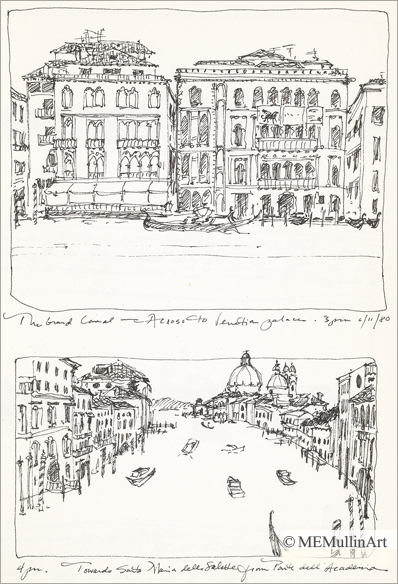 The Grand Canal — Across to Venetian palace. 3pm 6/11/80
4 pm. Towards Santa Maria della Salute from Ponte dell'Academia
© MEMullinArt